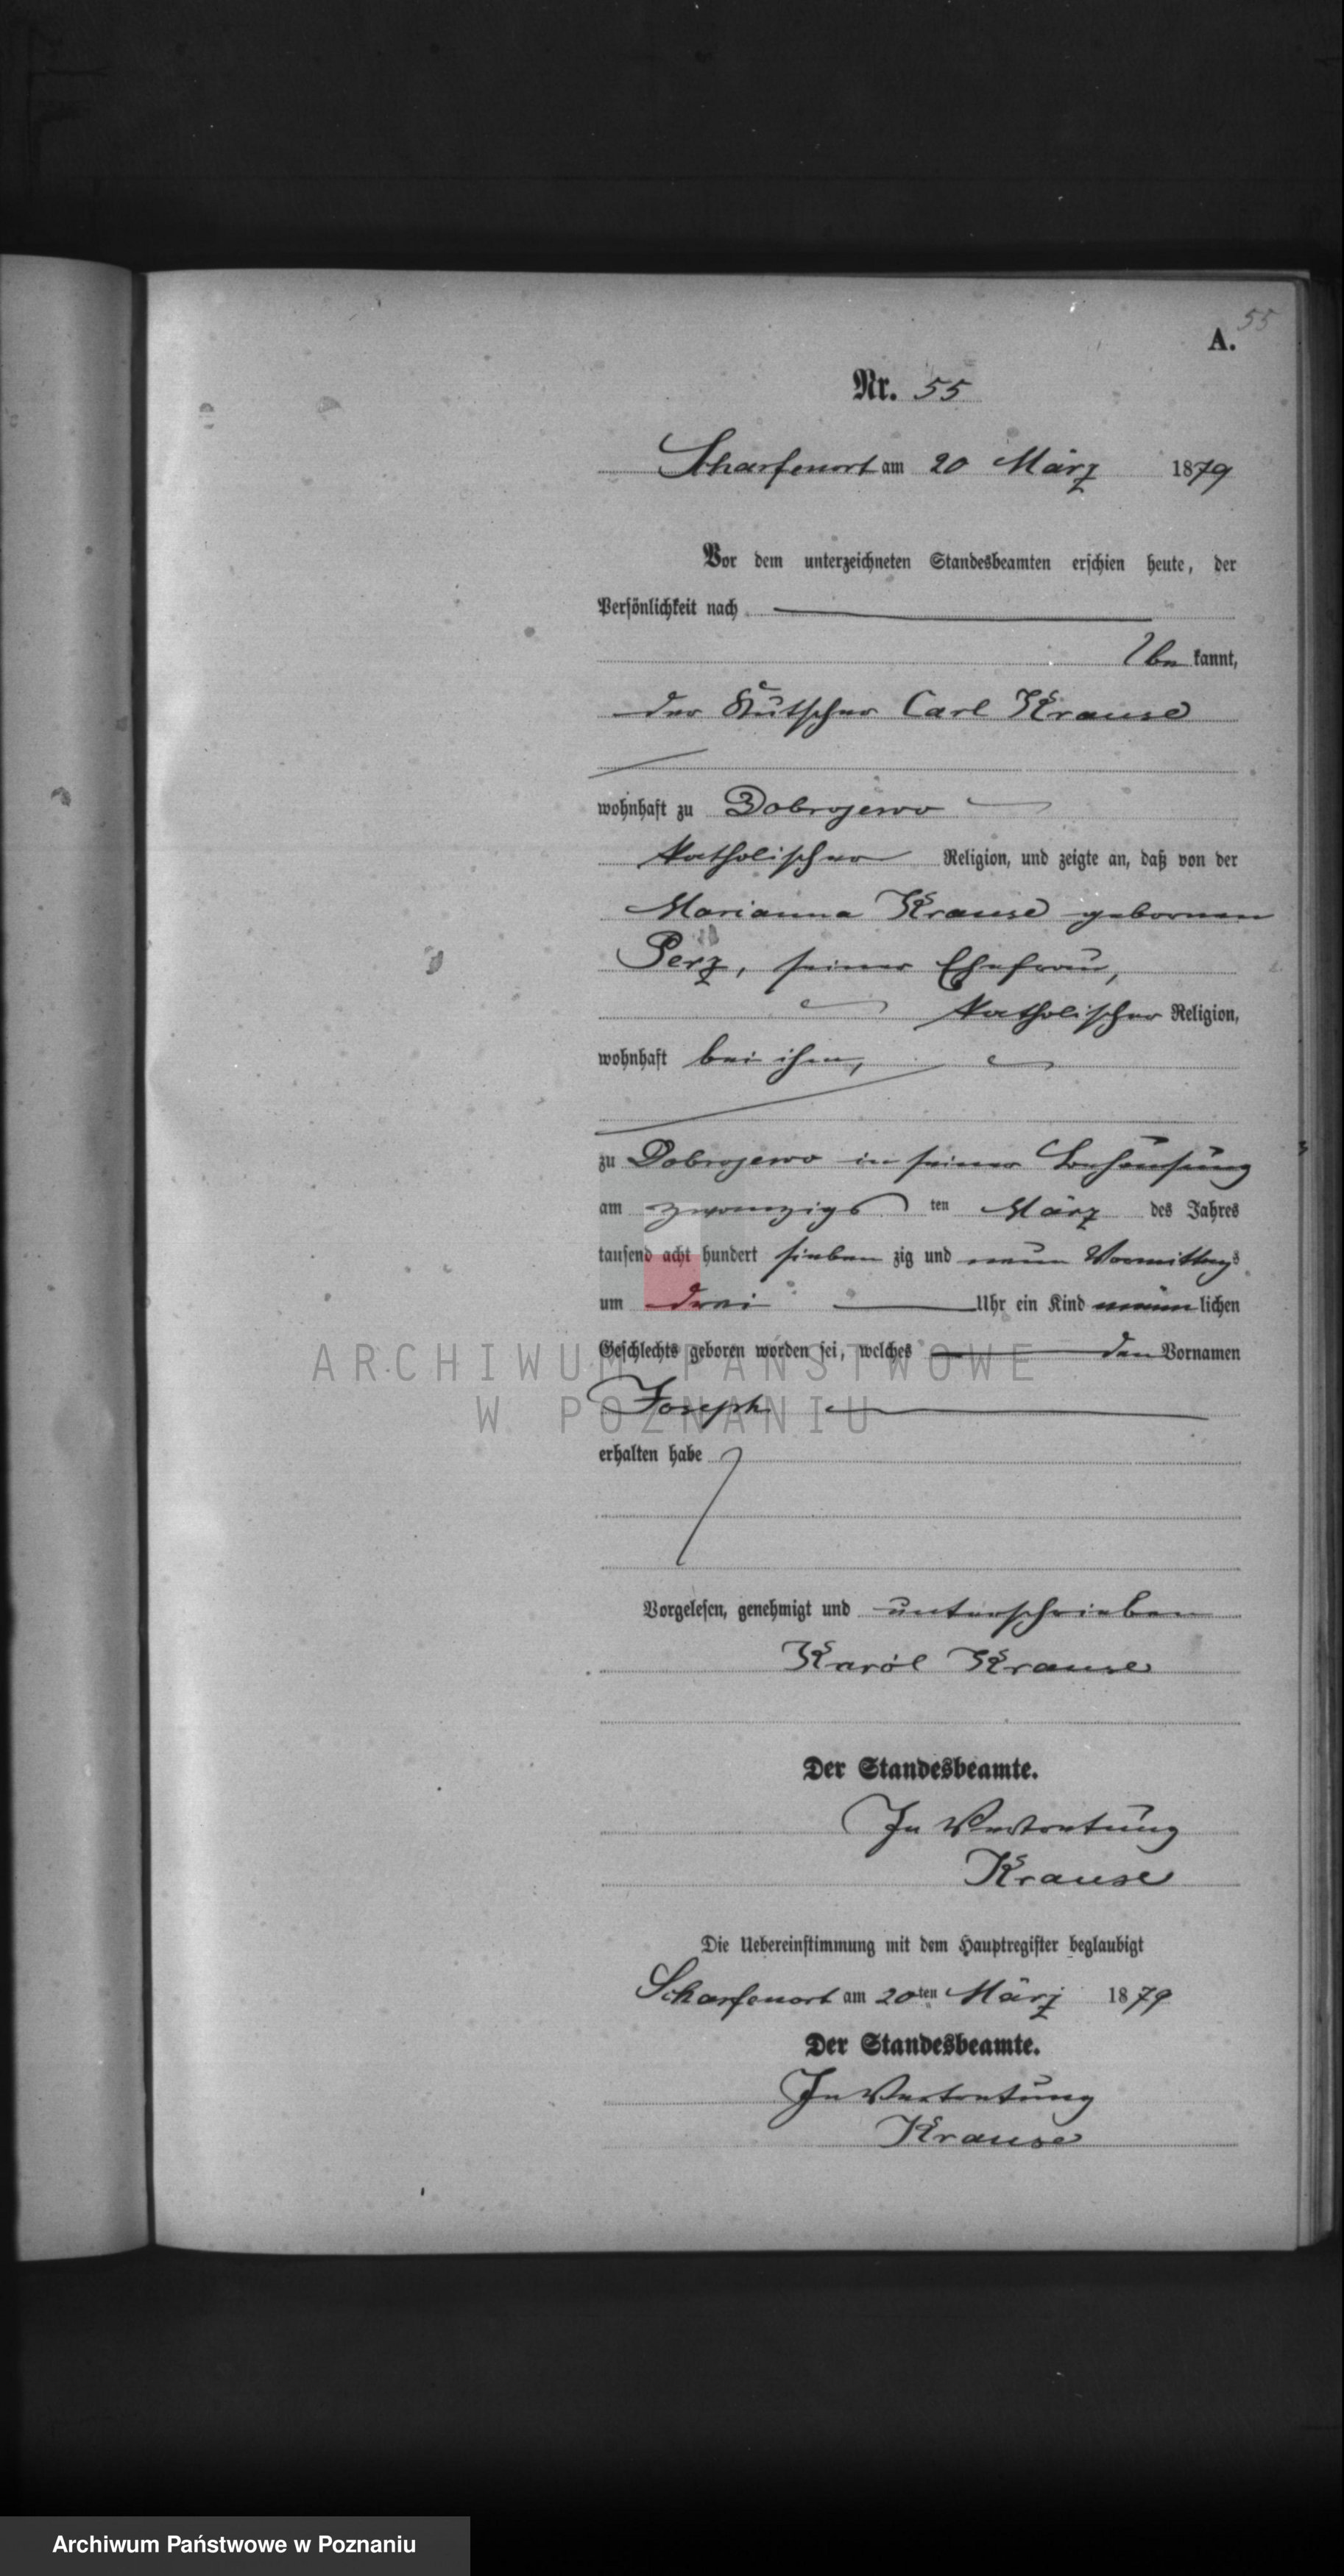 55
A.
Nr. 55
Scharfenort am 20 März 1879
Vor dem unterzeichneten Standesbeamten erschien heute, der
Persönlichkeit nach
be kannt,
der Kutscher Carl Krause
wohnhaft zu Dobrojewo
katholischer Religion, und zeigte an, daß von der
Marianna Krause gebornen
Perz, seiner Ehefrau,
katholischer Religion,
wohnhaft bei ihm,
zu Dobrojewo in seiner Behausung
am zwanzigs ten März des Jahres
tausend acht hundert sieben zig und neun Vormittags
um drei Uhr ein Kind männ lichen
Geschlechts geboren worden sei, welches den Vornamen
ARCHIWUM PAŃSTWOWE
Joseph
W POZNANIU
erhalten habe
Vorgelesen, genehmigt und unterschrieben
Karól Krause
Der Standesbeamte.
In Vertretung
Krause
Die Uebereinstimmung mit dem Hauptregister beglaubigt
Scharfenort am 20ten März 1879
Der Standesbeamte.
In Vertretung
Krause
Archiwum Państwowe w Poznaniu